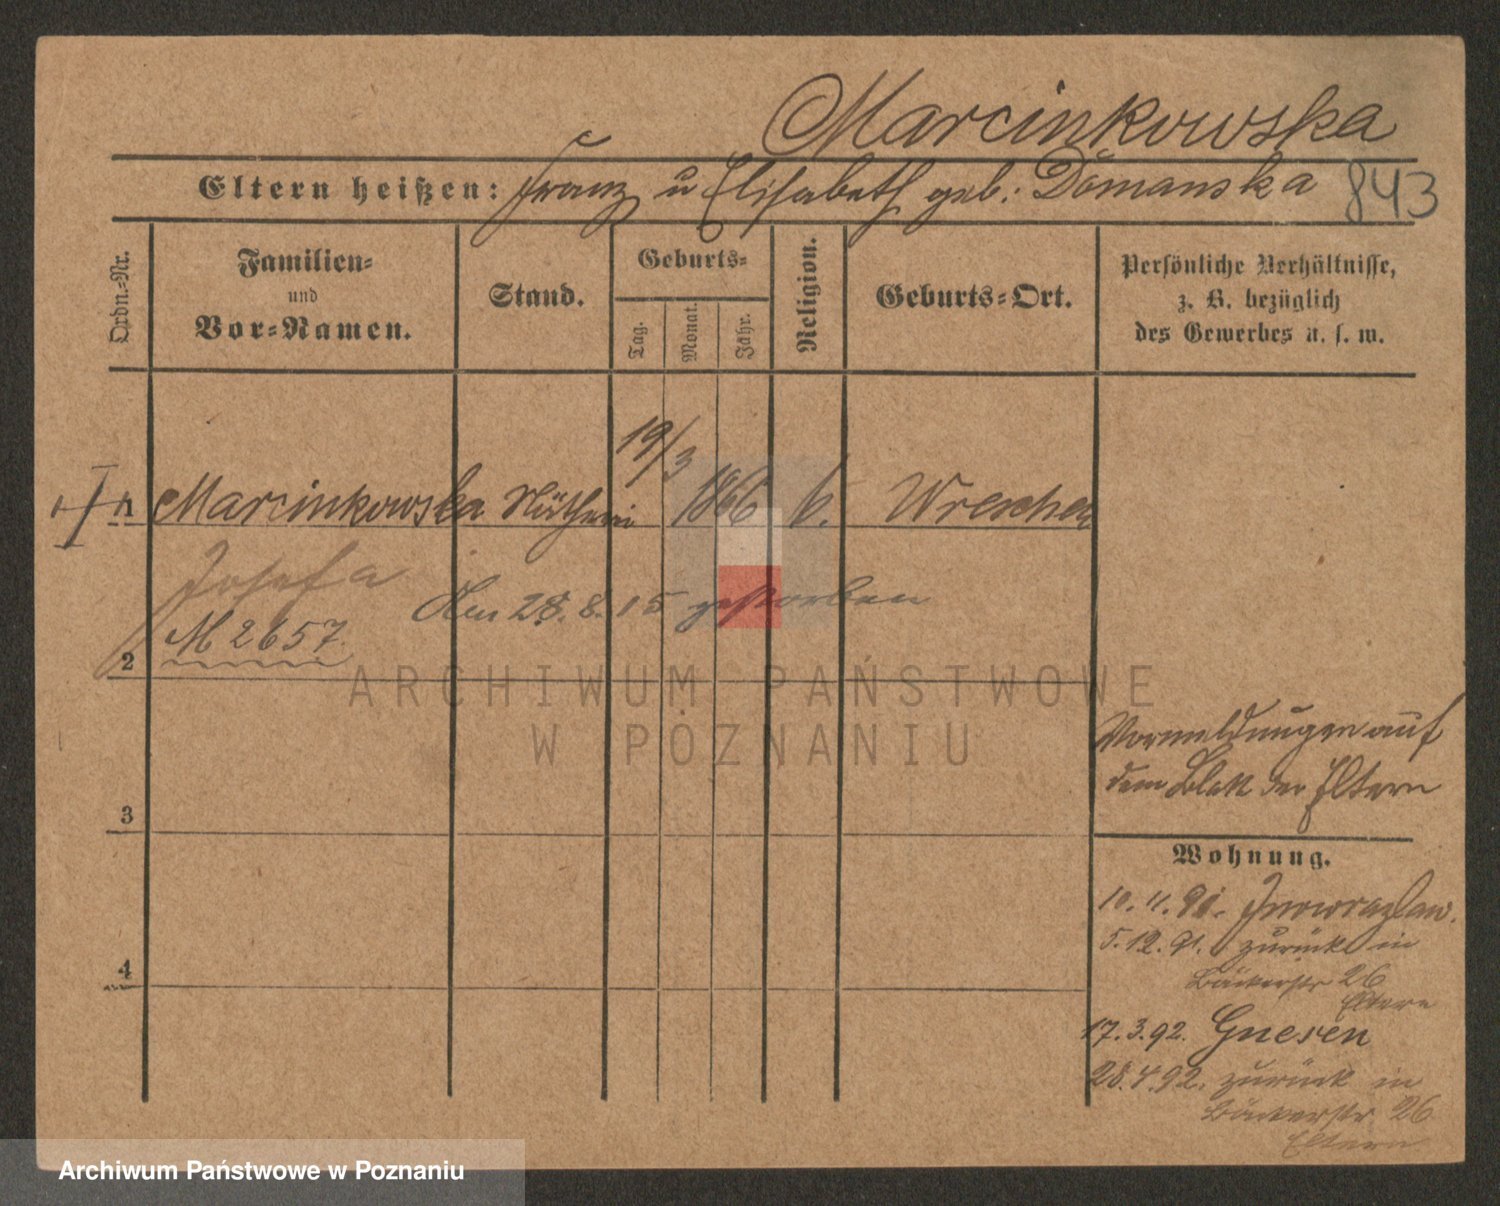 Marcinkowska
Eltern heißen: Franz u Elisabeth geb: Domanska
843
Ordn.-Nr.
Familien-
und
Vor-Namen.
Stand.
Geburts-
Tag.
Monat.
Jahr.
Religion.
Geburts-Ort.
Persönliche Verhältnisse,
z. B. bezüglich
des Gewerbes u. s. w.
1 Marcinkowska Näherin 19/3 1866 k. Wreschen
Josefa
Am 28.8.15 gestorben
M 2657.
2
ARCHIWUM PAŃSTWOWE
W POZNANIU
Vormeldungen auf
dem Blatt der Eltern
3
Wohnung.
10.11.91. Inowrazlaw.
5.12.91. zurück in
Bäckerstr 26
Eltern
4
17.3.92. Gnesen
28.4.92. zurück in
Bäckerstr 26
Eltern
Archiwum Państwowe w Poznaniu